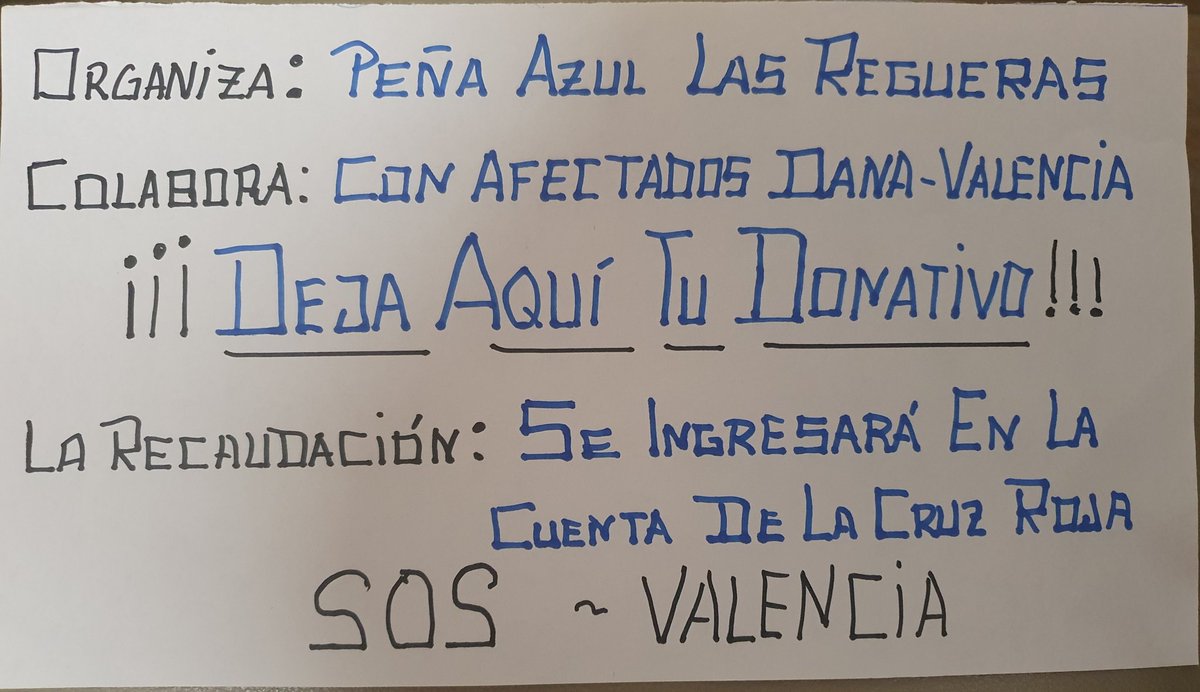 ORGANIZA: PEÑA AZUL LAS REGUERAS
COLABORA: CON AFECTADOS DANA-VALENCIA
¡¡¡ DEJA AQUÍ TU DONATIVO!!!
LA RECAUDACIÓN: SE INGRESARÁ EN LA
CUENTA DE LA CRUZ ROJA
SOS ~ VALENCIA